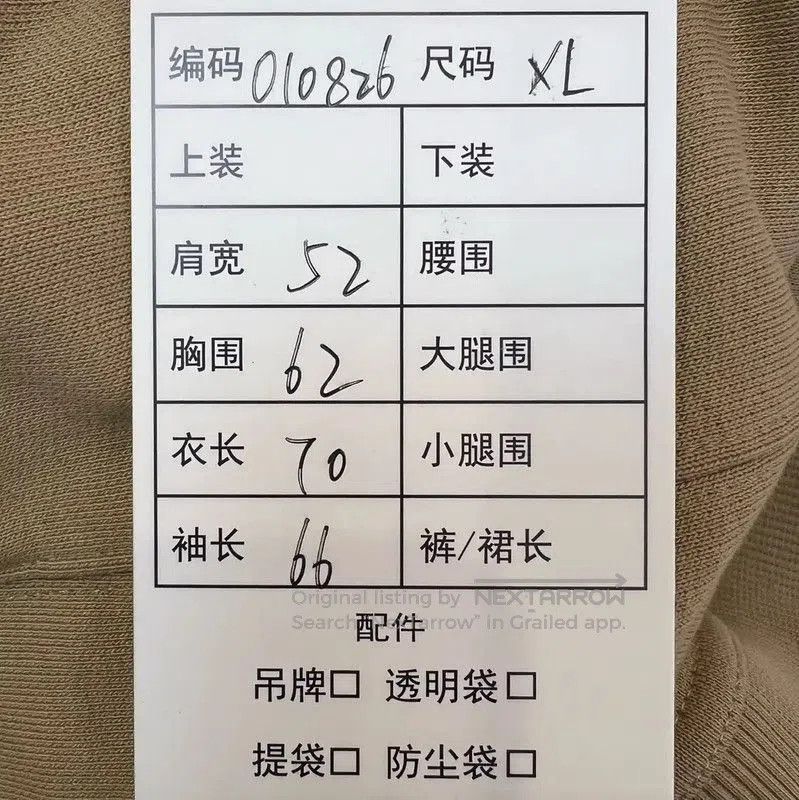 编码 010826 尺码 XL
上装 下装
肩宽 52 腰围
胸围 62 大腿围
衣长 70 小腿围
袖长 66 裤/裙长
Original listing by NEXTARROW
配件
Search "Nextarrow" in Grailed app.
吊牌□ 透明袋□
提袋□ 防尘袋□